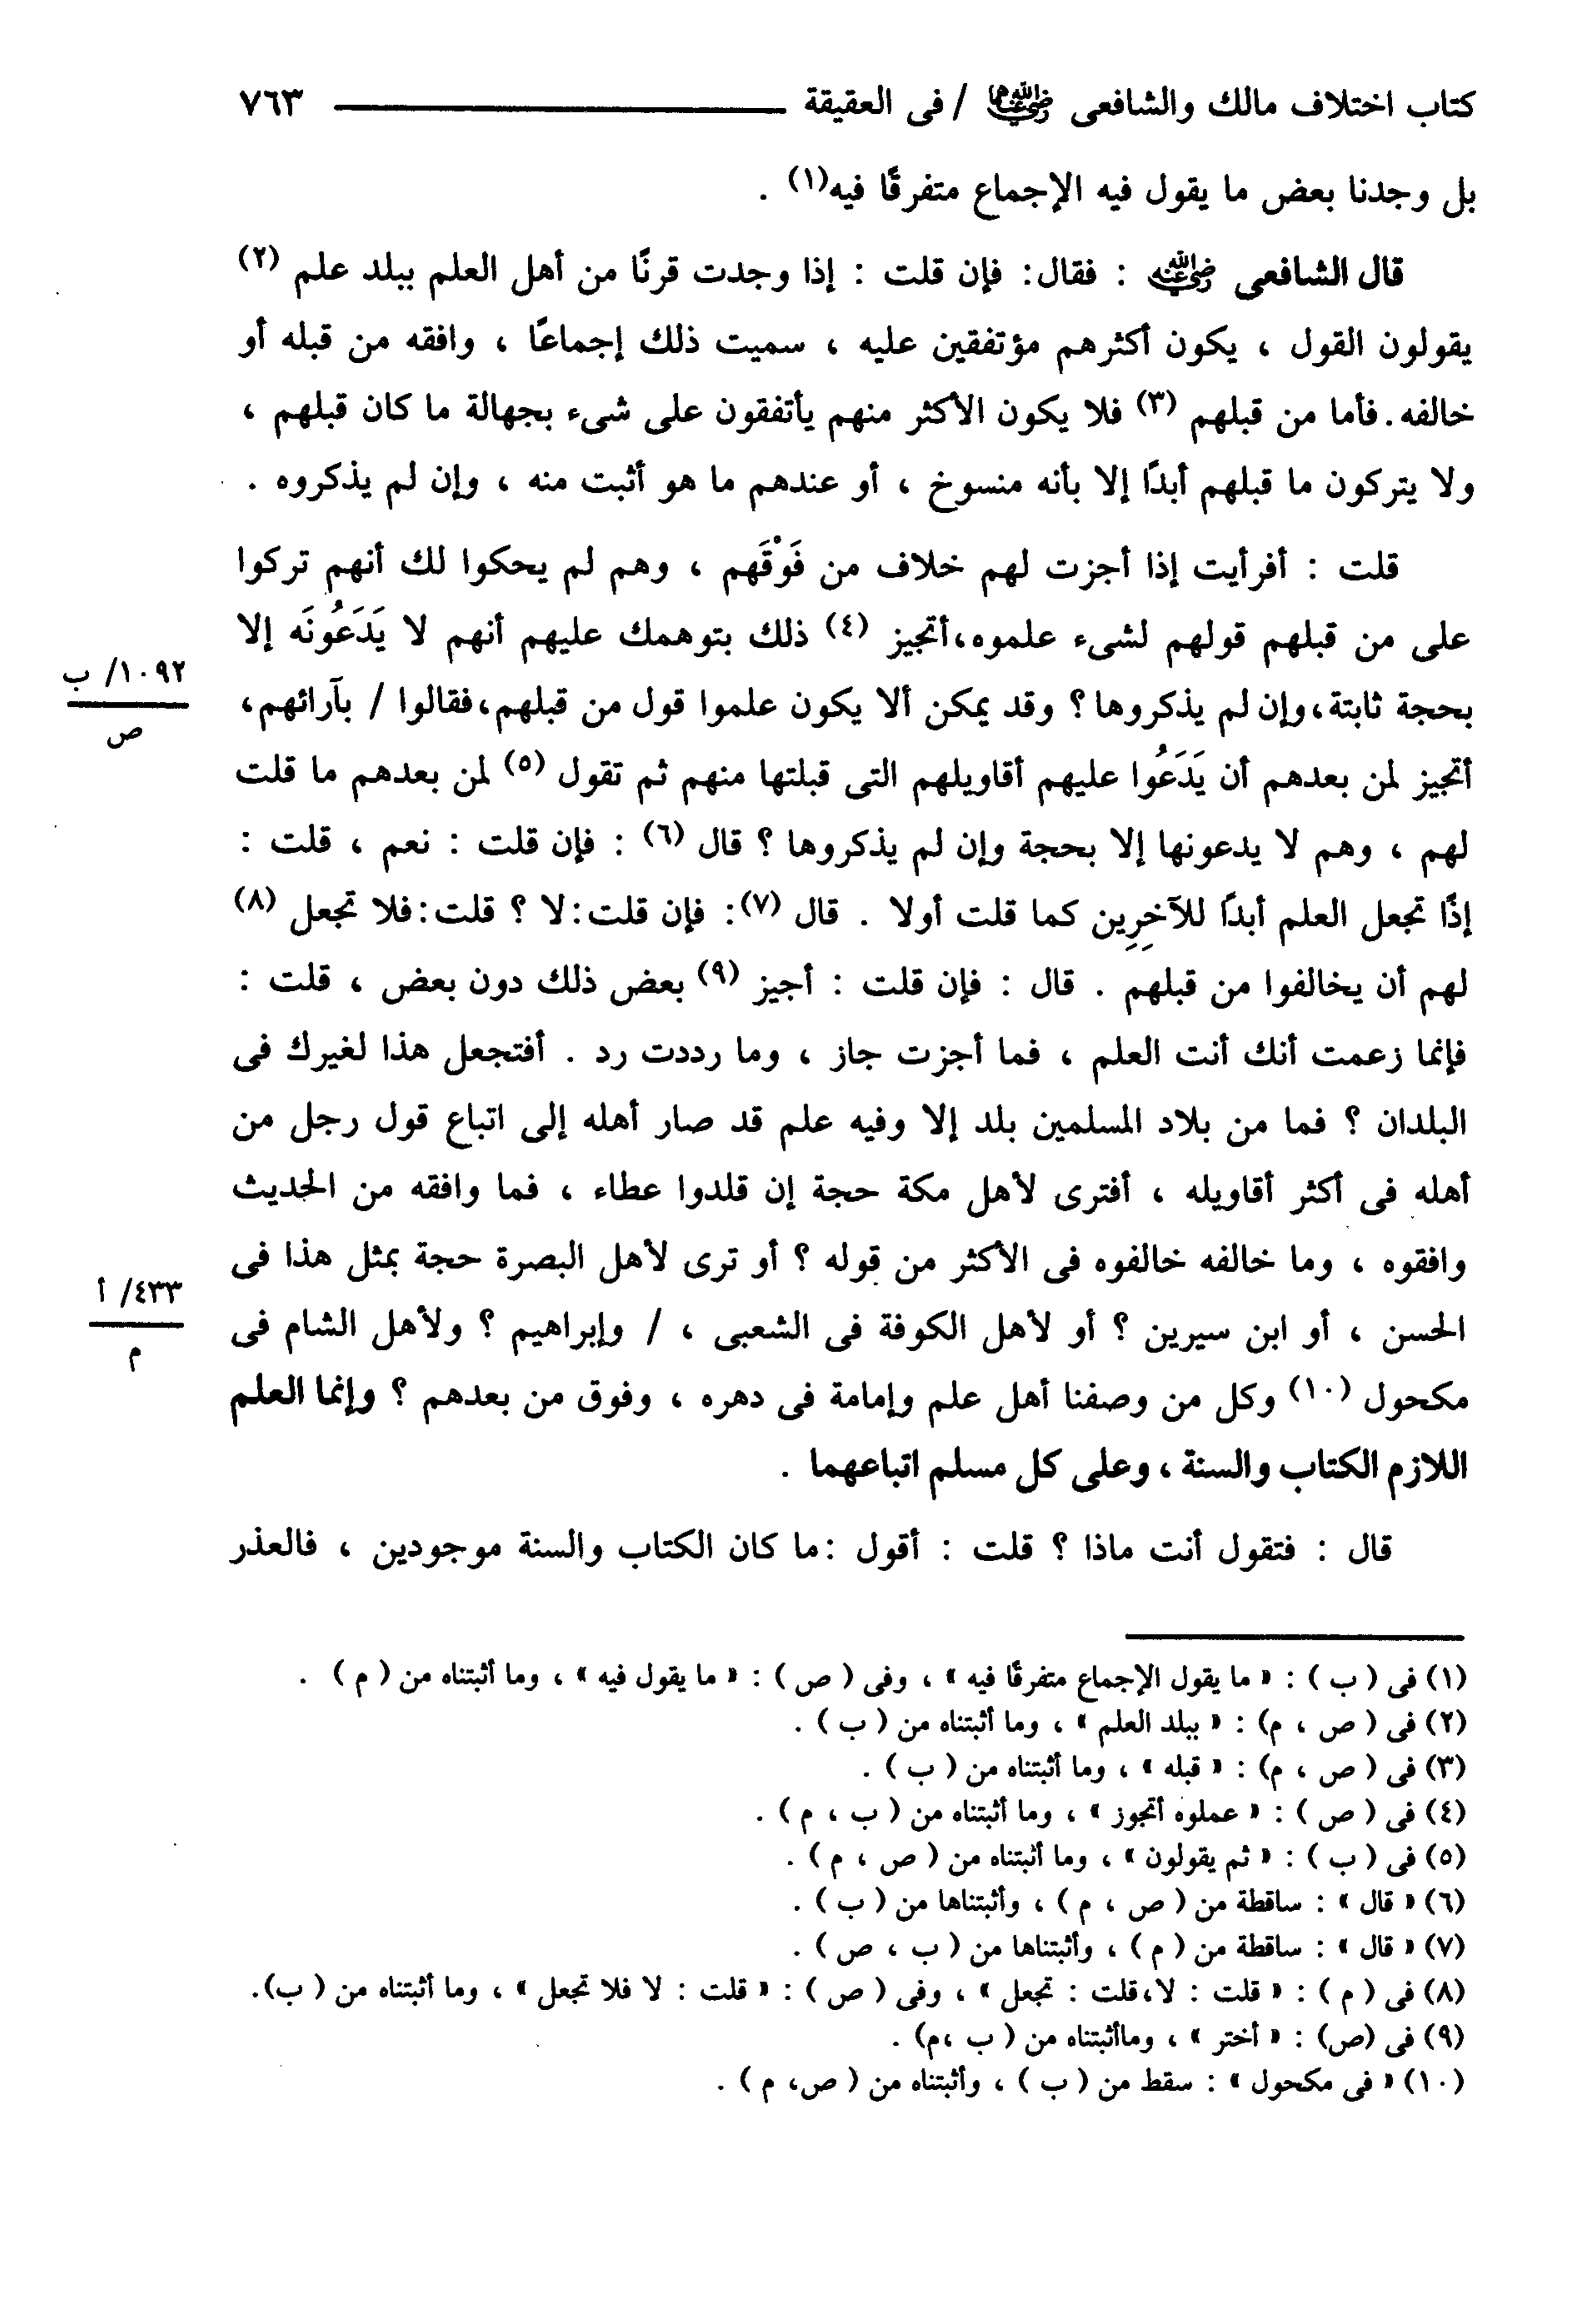 كتاب اختلاف مالك والشافعى رضي الله عنهما / فى العقيقة ـــــــ ٧٦٣
بل وجدنا بعض ما يقول فيه الإجماع متفرقًا فيه(١) .
قال الشافعى رضي الله عنه : فقال: فإن قلت : إذا وجدت قرنًا من أهل العلم ببلد علم (٢)
يقولون القول ، يكون أكثرهم مؤتفقين عليه ، سميت ذلك إجماعًا ، وافقه من قبله أو
خالفه. فأما من قبلهم (٣) فلا يكون الأكثر منهم يأتفقون على شىء بجهالة ما كان قبلهم ،
ولا يتركون ما قبلهم أبدًا إلا بأنه منسوخ ، أو عندهم ما هو أثبت منه ، وإن لم يذكروه .
قلت : أفرأيت إذا أجزت لهم خلاف من فَوْقَهم ، وهم لم يحكوا لك أنهم تركوا
على من قبلهم قولهم لشىء علموه،أتجيز (٤) ذلك بتوهمك عليهم أنهم لا يَدَعُونَه إلا
بحجة ثابتة،وإن لم يذكروها ؟ وقد يمكن ألا يكون علموا قول من قبلهم،فقالوا / بآرائهم،
١٠٩٢/ ب
ص
أتجيز لمن بعدهم أن يَدَعُوا عليهم أقاويلهم التى قبلتها منهم ثم تقول (٥) لمن بعدهم ما قلت
لهم ، وهم لا يدعونها إلا بحجة وإن لم يذكروها ؟ قال (٦) : فإن قلت : نعم ، قلت :
إذًا تجعل العلم أبدًا للآخِرِين كما قلت أولا . قال (٧): فإن قلت:لا ؟ قلت:فلا تجعل (٨)
لهم أن يخالفوا من قبلهم . قال : فإن قلت : أجيز (٩) بعض ذلك دون بعض ، قلت :
فإنما زعمت أنك أنت العلم ، فما أجزت جاز ، وما رددت رد . أفتجعل هذا لغيرك فى
البلدان ؟ فما من بلاد المسلمين بلد إلا وفيه علم قد صار أهله إلى اتباع قول رجل من
أهله فى أكثر أقاويله ، أفترى لأهل مكة حجة إن قلدوا عطاء ، فما وافقه من الحديث
وافقوه ، وما خالفه خالفوه فى الأكثر من قوله ؟ أو ترى لأهل البصرة حجة بمثل هذا فى
الحسن ، أو ابن سيرين ؟ أو لأهل الكوفة فى الشعبى ، / وإبراهيم ؟ ولأهل الشام فى
٤٣٣/ أ
م
مكحول (١٠) وكل من وصفنا أهل علم وإمامة فى دهره ، وفوق من بعدهم ؟ وإنما العلم
اللازم الكتاب والسنة ، وعلى كل مسلم اتباعهما .
قال : فتقول أنت ماذا ؟ قلت : أقول :ما كان الكتاب والسنة موجودين ، فالعذر
(١) فى ( ب ) : « ما يقول الإجماع متفرقًا فيه » ، وفى ( ص ) : « ما يقول فيه » ، وما أثبتناه من ( م ) .
(٢) فى ( ص ، م) : « ببلد العلم » ، وما أثبتناه من ( ب ) .
(٣) فى ( ص ، م) : « قبله » ، وما أثبتناه من ( ب ) .
(٤) فى ( ص ) : « عملوه أتجوز » ، وما أثبتناه من ( ب ، م ) .
(٥) فى ( ب ) : « ثم يقولون » ، وما أثبتناه من ( ص ، م ) .
(٦) « قال » : ساقطة من ( ص ، م ) ، وأثبتناها من ( ب ) .
(٧) « قال » : ساقطة من ( م ) ، وأثبتناها من ( ب ، ص ) .
(٨) فى ( م ) : « قلت : لا،قلت : تجعل » ، وفى ( ص ) : « قلت : لا فلا تجعل » ، وما أثبتناه من ( ب).
(٩) فى (ص) : « أختر » ، وماأثبتناه من ( ب ،م) .
(١٠) « فى مكحول » : سقط من ( ب ) ، وأثبتناه من ( ص، م ) .